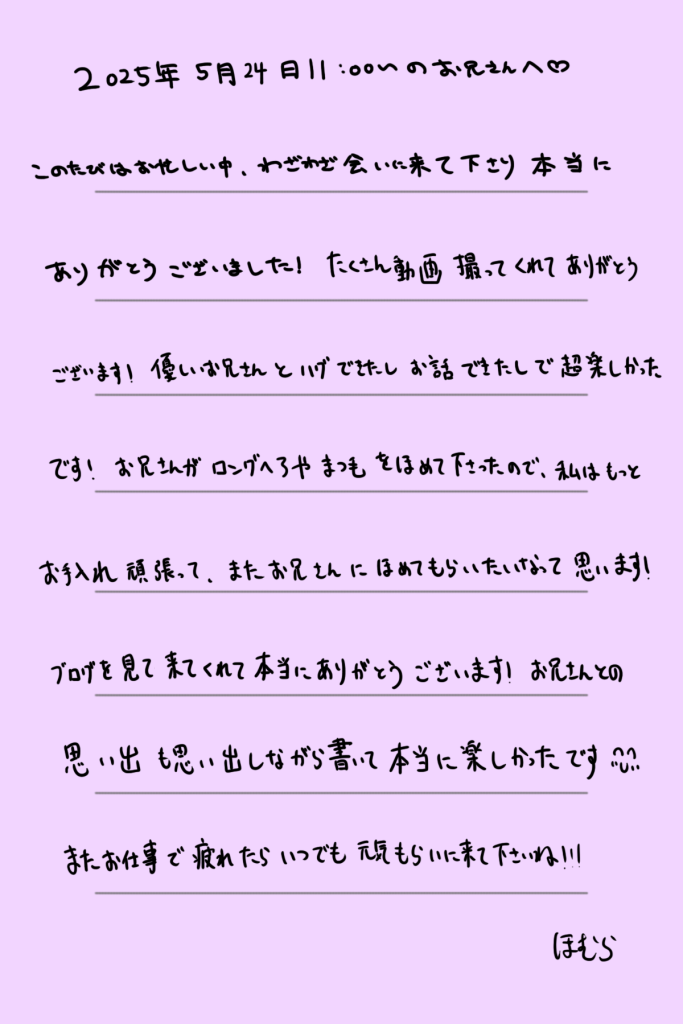 2025年 5月24日11:00〜のお兄さんへ♡
このたびはお忙しい中、わざわざ会いに来て下さり 本当に
ありがとうございました! たくさん動画 撮ってくれてありがとう
ございます! 優しいお兄さんとハグできたし お話できたしで超楽しかった
です! お兄さんがロングヘアやまつ毛をほめて下さったので、私はもっと
お手入れ頑張って、またお兄さんにほめてもらいたいなって思います!
ブログを見て来てくれて本当にありがとうございます! お兄さんとの
思い出も思い出しながら書いて本当に楽しかったです
またお仕事で疲れたらいつでも元気もらいに来て下さいね!!!
ほむら